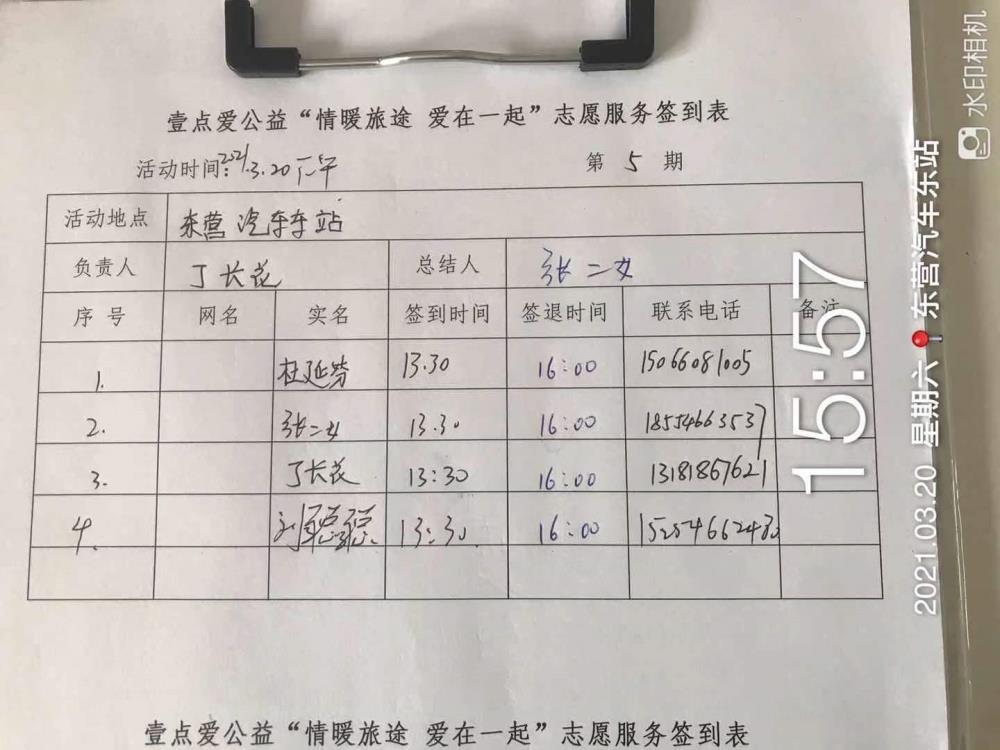 壹点爱公益“情暖旅途 爱在一起”志愿服务签到表
活动时间:2021.3.20下午 第 5 期
活动地点 东营汽车车站
负责人 丁长花 总结人 张二女
序号 网名 实名 签到时间 签退时间 联系电话 备注
1. 杜延芳 13.30 16:00 15066081005
2. 张二女 13.30 16:00 18554663537
3. 丁长花 13:30 16:00 13181867621
4. 刘聪聪 13:30 16:00 15254662480
壹点爱公益“情暖旅途 爱在一起”志愿服务签到表
15:57
2021.03.20 星期六 东营汽车东站
水印相机